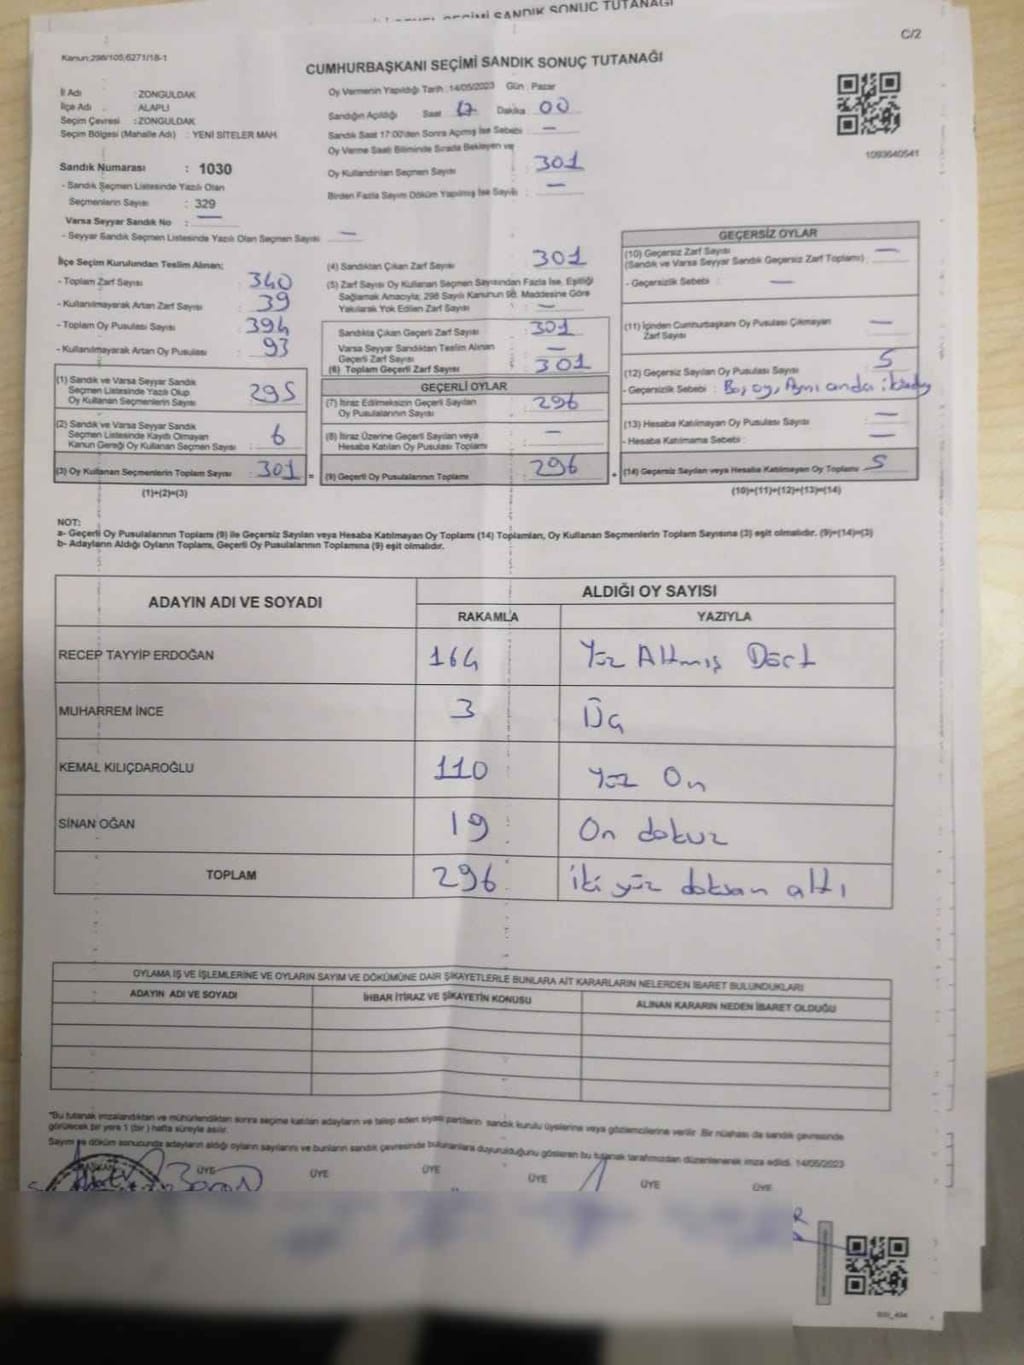 SEÇİMİ SANDIK SONUÇ TUTANAĞI
C/2
Kanun:298/105;6271/18-1
CUMHURBAŞKANI SEÇİMİ SANDIK SONUÇ TUTANAĞI
İl Adı : ZONGULDAK
İlçe Adı : ALAPLI
Seçim Çevresi : ZONGULDAK
Seçim Bölgesi (Mahalle Adı) : YENİ SİTELER MAH.
Oy Vermenin Yapıldığı Tarih : 14/05/2023 Gün : Pazar
Sandığın Açıldığı Saat 17 Dakika 00
Sandık Saat 17:00'den Sonra Açılmış İse Sebebi —
Oy Verme Saati Bitiminde Sırada Bekleyen ve
Oy Kullandırılan Seçmen Sayısı 301
Birden Fazla Sayım Döküm Yapılmış İse Sayısı —
1093640541
Sandık Numarası : 1030
- Sandık Seçmen Listesinde Yazılı Olan
Seçmenlerin Sayısı : 329
Varsa Seyyar Sandık No : —
- Seyyar Sandık Seçmen Listesinde Yazılı Olan Seçmen Sayısı —
İlçe Seçim Kurulundan Teslim Alınan;
- Toplam Zarf Sayısı : 340
- Kullanılmayarak Artan Zarf Sayısı : 39
- Toplam Oy Pusulası Sayısı : 394
- Kullanılmayarak Artan Oy Pusulası : 93
(1) Sandık ve Varsa Seyyar Sandık
Seçmen Listesinde Yazılı Olup
Oy Kullanan Seçmenlerin Sayısı 295
(2) Sandık ve Varsa Seyyar Sandık
Seçmen Listesinde Kayıtlı Olmayan
Kanun Gereği Oy Kullanan Seçmen Sayısı 6
(3) Oy Kullanan Seçmenlerin Toplam Sayısı 301 =
(1)+(2)=(3)
(4) Sandıktan Çıkan Zarf Sayısı 301
(5) Zarf Sayısı Oy Kullanan Seçmen Sayısından Fazla İse, Eşitliği
Sağlamak Amacıyla; 298 Sayılı Kanunun 98. Maddesine Göre
Yakılarak Yok Edilen Zarf Sayısı : —
Sandıkta Çıkan Geçerli Zarf Sayısı 301
Varsa Seyyar Sandıktan Teslim Alınan
Geçerli Zarf Sayısı —
(6) Toplam Geçerli Zarf Sayısı 301
GEÇERLİ OYLAR
(7) İtiraz Edilmeksizin Geçerli Sayılan
Oy Pusulalarının Sayısı 296
(8) İtiraz Üzerine Geçerli Sayılan veya
Hesaba Katılan Oy Pusulası Toplamı —
(9) Geçerli Oy Pusulalarının Toplamı 296 +
GEÇERSİZ OYLAR
(10) Geçersiz Zarf Sayısı
(Sandık ve Varsa Seyyar Sandık Geçersiz Zarf Toplamı) : —
- Geçersizlik Sebebi : —
(11) İçinden Cumhurbaşkanı Oy Pusulası Çıkmayan
Zarf Sayısı —
(12) Geçersiz Sayılan Oy Pusulası Sayısı 5
- Geçersizlik Sebebi : Boş oy, Aynı anda
(13) Hesaba Katılmayan Oy Pusulası Sayısı —
- Hesaba Katılmama Sebebi : —
(14) Geçersiz Sayılan veya Hesaba Katılmayan Oy Toplamı 5
(10)+(11)+(12)+(13)=(14)
NOT:
a- Geçerli Oy Pusulalarının Toplamı (9) ile Geçersiz Sayılan veya Hesaba Katılmayan Oy Toplamı (14) Toplamları, Oy Kullanan Seçmenlerin Toplam Sayısına (3) eşit olmalıdır. (9)+(14)=(3)
b- Adayların Aldığı Oyların Toplamı, Geçerli Oy Pusulalarının Toplamına (9) eşit olmalıdır.
ADAYIN ADI VE SOYADI ALDIĞI OY SAYISI
RAKAMLA YAZIYLA
RECEP TAYYİP ERDOĞAN 164 Yüz Altmış Dört
MUHARREM İNCE 3 Üç
KEMAL KILIÇDAROĞLU 110 Yüz On
SİNAN OĞAN 19 On dokuz
TOPLAM 296 iki yüz doksan altı
OYLAMA İŞ VE İŞLEMLERİNE VE OYLARIN SAYIM VE DÖKÜMÜNE DAİR ŞİKAYETLERLE BUNLARA AİT KARARLARIN NELERDEN İBARET BULUNDUKLARI
ADAYIN ADI VE SOYADI İHBAR İTİRAZ VE ŞİKAYETİN KONUSU ALINAN KARARIN NEDEN İBARET OLDUĞU
*Bu tutanak imzalandıktan ve mühürlendikten sonra seçime katılan adayların ve talep eden siyasi partilerin sandık kurulu üyelerine veya gözlemcilerine verilir. Bir nüshası da sandık çevresinde
görülecek bir yere 1 (bir) hafta süreyle asılır.
Sayım ve döküm sonucunda adayların aldığı oyların sayılarını ve bunların sandık çevresinde bulunanlara duyurulduğunu gösteren bu tutanak tarafımızdan düzenlenerek imza edildi. 14/05/2023
BAŞKAN ÜYE ÜYE ÜYE ÜYE ÜYE ÜYE